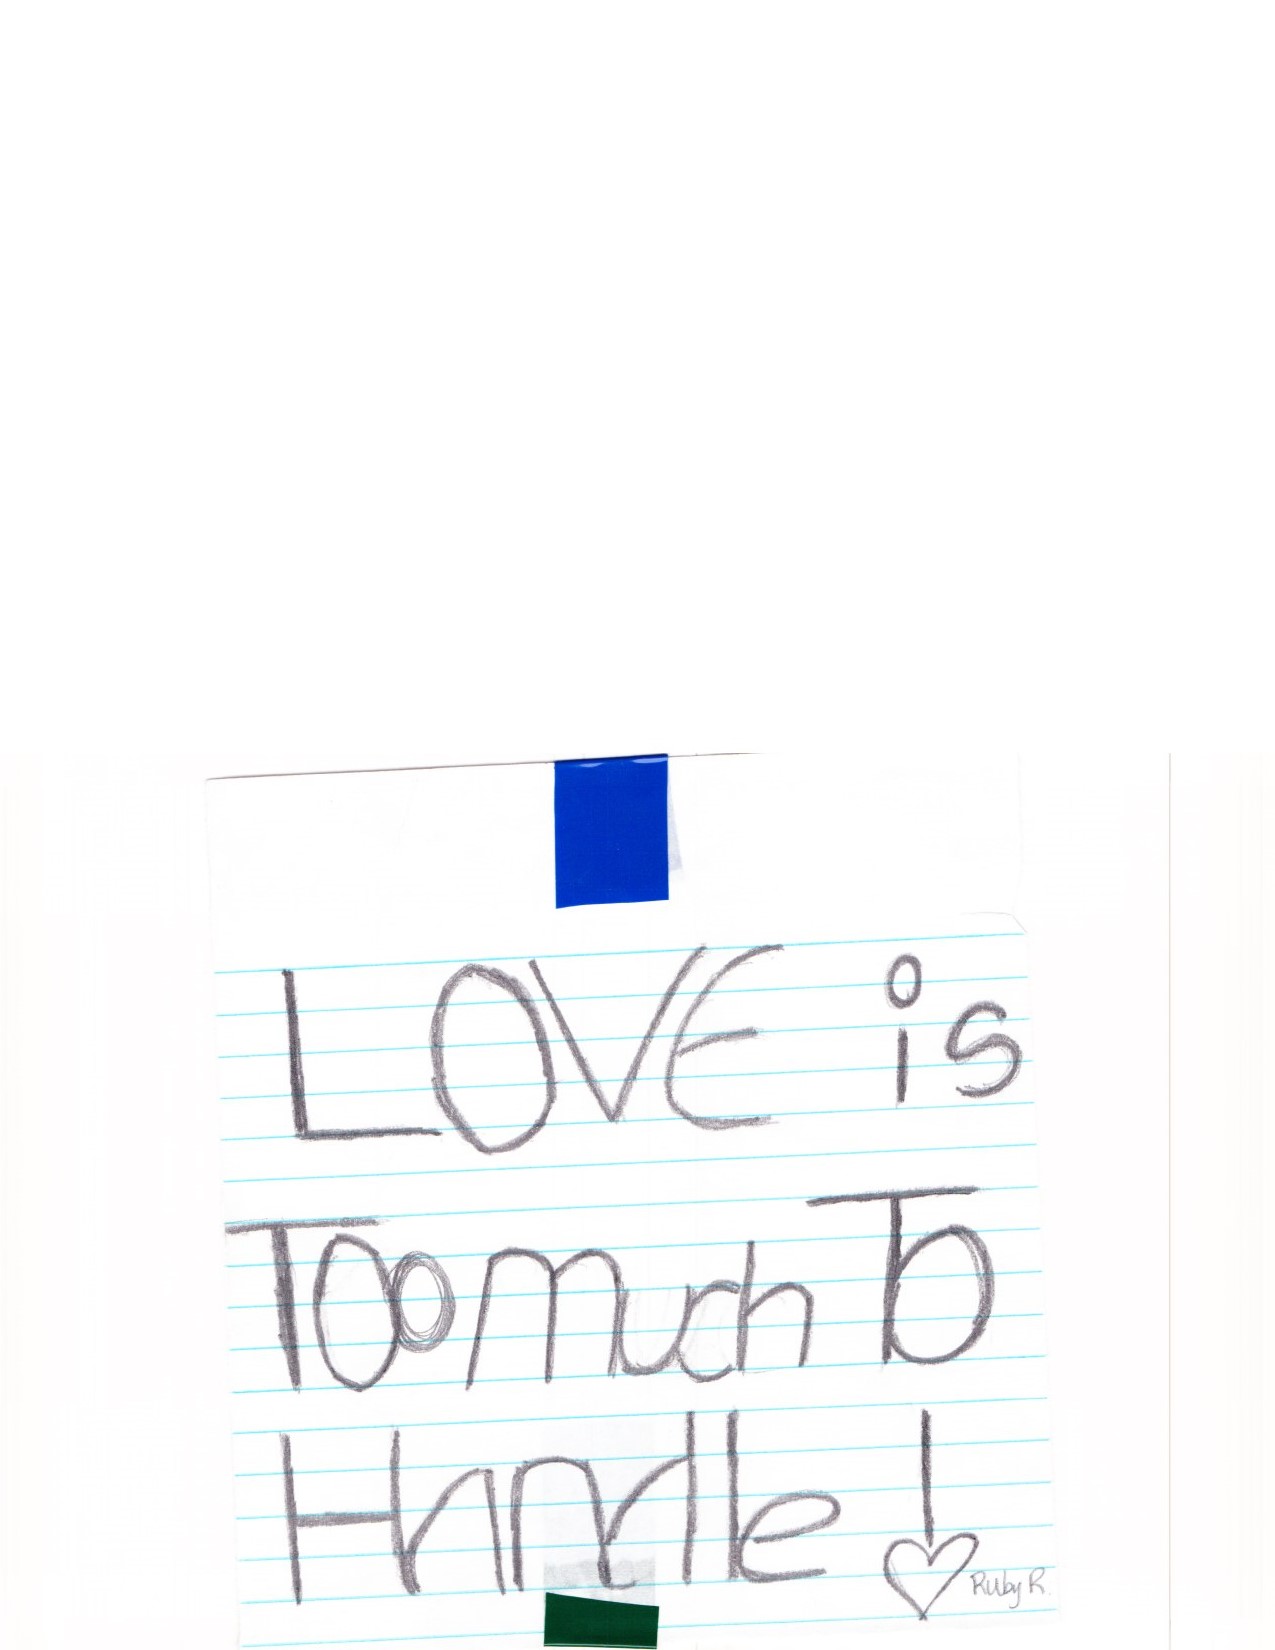 LOVE is
Too Much To
Handle!
Ruby R.